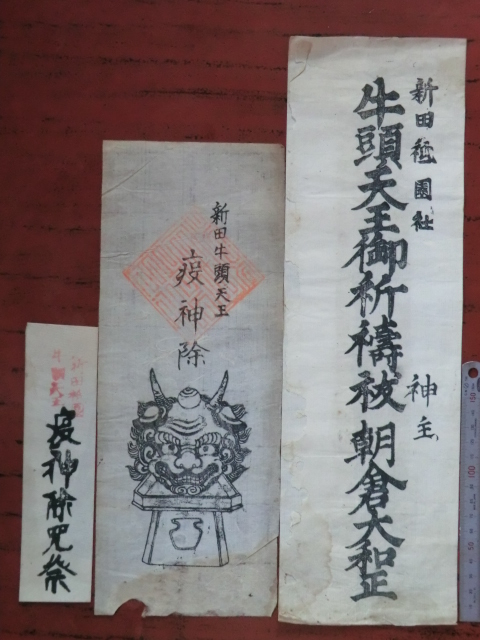 新田祗園社
牛頭天王御祈禱祓
神主
朝倉大和正
新田牛頭天王
疫神除
疫神除